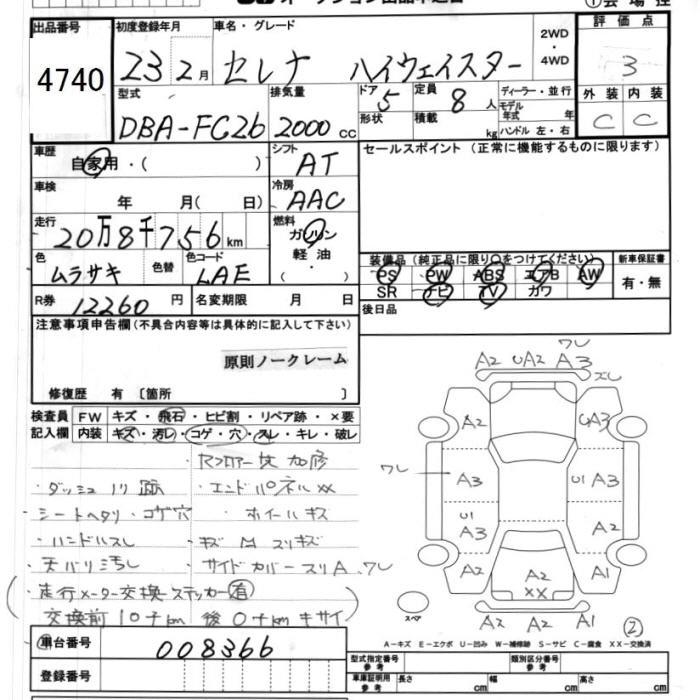 出品番号 初度登録年月 車名・グレード 2WD・4WD 評価点
4740 23 2月 セレナ ハイウェイスター 3
型式 排気量 ドア 5 定員 8人 ディーラー・並行 外装 内装
DBA-FC26 2000cc 形状 積載 kg モデル年式 年 ハンドル 左・右 C C
車歴 自家用・( ) シフト AT セールスポイント (正常に機能するものに限ります)
車検 年 月( 日) 冷房 AAC
走行 20万8千756km 燃料 ガソリン・軽油・( )
色 ムラサキ 色替 色コード LAE
装備品 (純正品に限り○をつけてください) 新車保証書
PS PW ABS エアB AW 有・無
SR ナビ TV カワ
R券 12260円 名変期限 月 日 後日品
注意事項申告欄 (不具合内容等は具体的に記入して下さい)
原則ノークレーム
修復歴 有 〔箇所 〕
検査員 FW キズ・飛石・ヒビ割・リペア跡・×要
記入欄 内装 キズ・汚レ・コゲ・穴・スレ・キレ・破レ
・ダッシュ ノリ跡 ・エンドパネルXX
・シートヘタリ・コゲ穴 ・ホイールキズ
・ハンドルスレ
・天バリ汚レ ・サイドカバースリA、ワレ
・走行メーター交換ステッカー有
交換前10千km 後0千kmキサイ
ワレ
A2 UA2 A3
ズレ
A2 UA3
ワレ
A3 U1 A3
U1 A3 A2
A2 A2 XX A1
A2 A2 A1
スペア
②
A-キズ E-エクボ U-凹み W-補修跡 S-サビ C-腐食 XX-交換済
車台番号 008366
登録番号
型式指定番号 参考 類別区分番号 参考
車庫証明用 参考 長さ cm 幅 cm 高さ cm